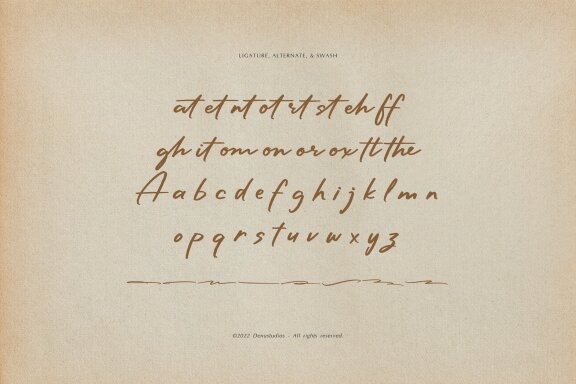 LIGATURE, ALTERNATE, & SWASH
at et nt ot rt st eh ff
gh it om on or ox tt the
A a b c d e f g h i j k l m n
o p q r s t u v w x y z
©2022 Denustudios - All rights reserved.